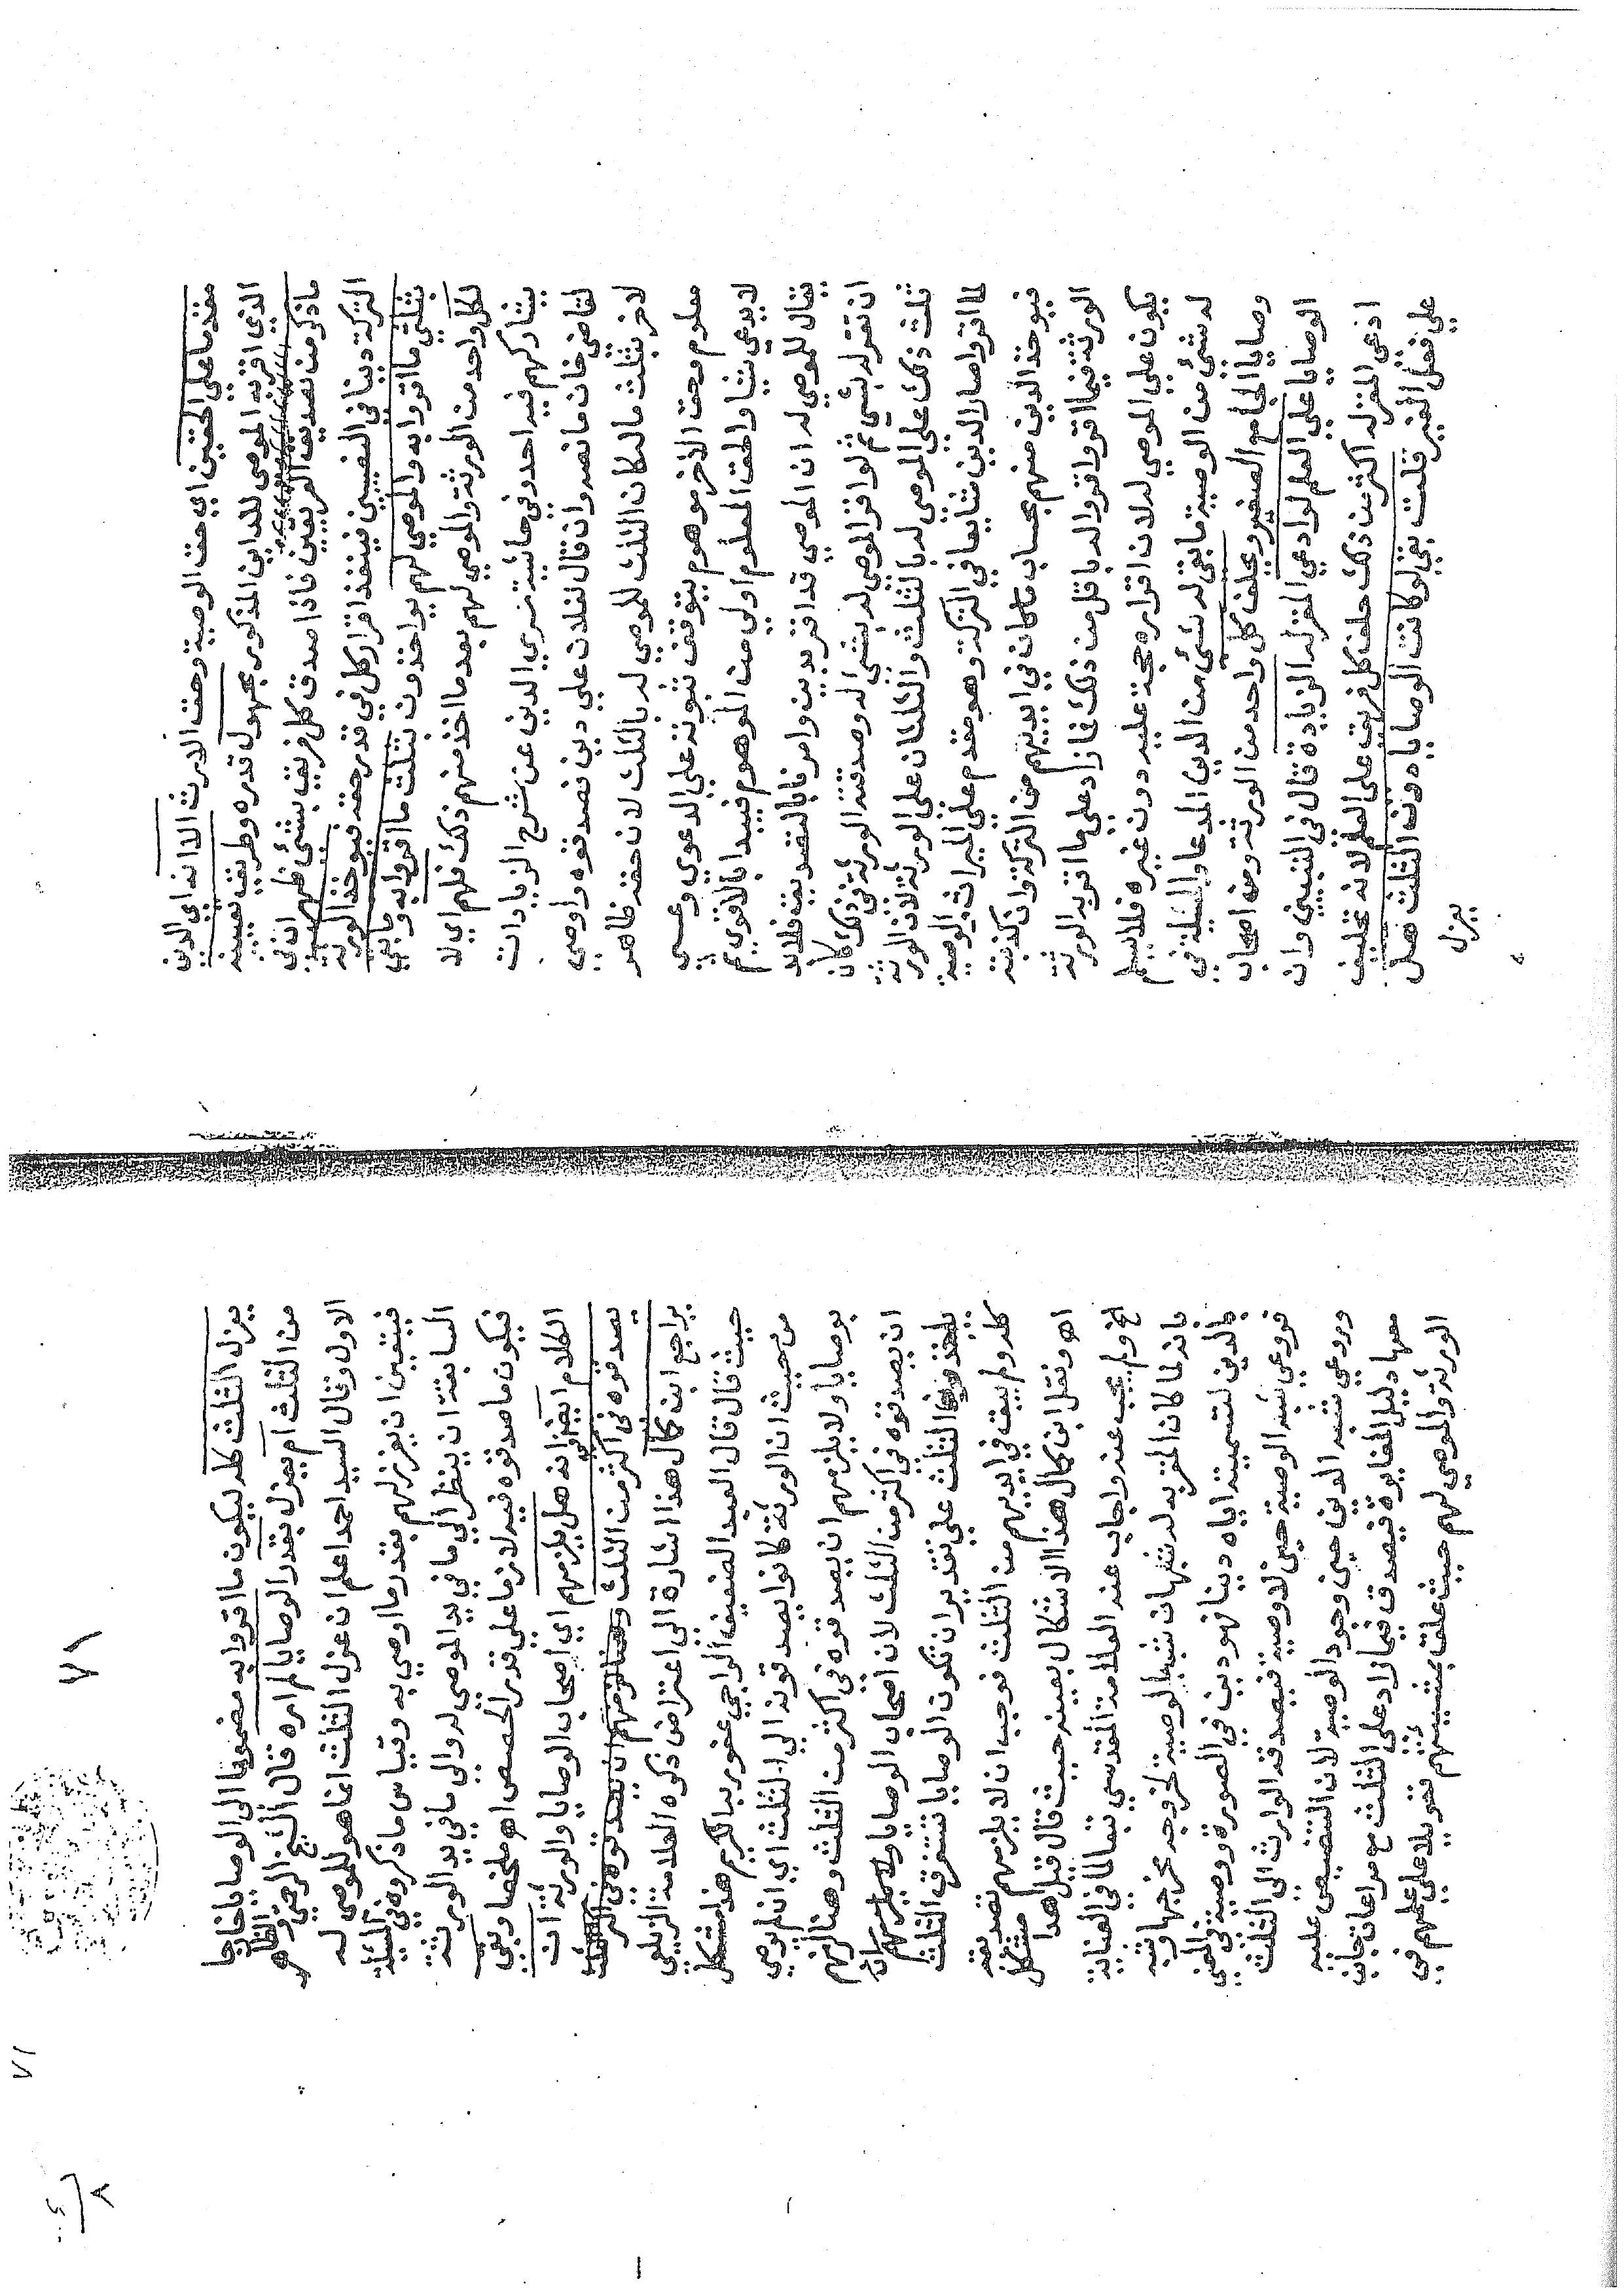 مقدما علي الحقين اي حق الوصية وحق الارث الا انه اي الدين
الذي اقر به الموصى للداين المذكور مجهول قدره وطريق تعيينه
ماذكر من تصديق الفريقين فاذا صدق كل فريق بشئ ظهر ان في
التركة دينا في النصيبين فينفذ اقرار كل في قدر حقه فيوخذ الورثة
بثلثي ما اقروا به والموصي لهم يواخذون بثلث ما اقروا به وما بقي
لكل واحد من الورثة والموصي لهم بعد ما اخذ منهم ذلك فلهم اي لا
يشاركهم فيه احد وفي حاشية سري الدين عن شرح الزيادات
لقاضي خان ما نصه وان قال لفلان علي دين فصدقوه واوصي
لاخر بثلث ماله كان الثلث للموصي له بالثلث لان حقه ظاهر
معلوم وحق الاخر موهوم يتوقف ثبوته علي الدعوي وعسي
لا يدعي شيا والحق المعلوم اولي من الموهوم فيبدا بالاقوي ثم
يقال للموصي له ان الموصي قد اقر بدين وامرنا بالتصديق فلا بد
ان تقر له بشئ ثم لو اقر الموصي له بشئ له وصدقته الورثة في ذلك كان
ثلث ذلك علي الموصى له بالثلث والثلثان علي الورثة لان الورثة
لما اقروا صار الدين شايعا في التركة وهو مقدم علي الميراث والوصية
فيوخذ الدين منهم بحساب ما كان في ايديهم من التركة وان كذبته
الورثة فيما اقر واقروا له باقل من ذلك فما زاد علي ما اقر به الورثة
يكون علي الموصي له لان اقراره حجة عليه دون غيره فلا يسلم
له شئ من الوصية ما بقي له شئ من الدين المدعا والمسئلة في
وصايا الجامع الصغير ويحلف كل واحد من الورثة ومن اصحاب
الوصايا علي العلم لو ادعي المقر له الزيادة قال في التبيين وان
ادعي المقر له اكثر من ذلك حلف كل فريق علي العلم لانه تحليف
علي فعل الغير قلت بقي لو كانت الوصايا دون الثلث هل
يعزل
٧١
٧١
يعزل الثلث كله ليكون ما اقروا به مضموما الى الوصايا خارجا
من الثلث ام يعزل بقدر الوصايا لم اره قال الشيخ الرحمتي والظاهر
الاول وقال السيد احمد اعلم ان عزل الثلث انما هو للموصى له
فيتعين ان يفرز لهم بقدر ما اوصي به وقياس ما ذكروه في المسئلة
السابقة ان ينظر الي ما في يد الموصي له والي ما في يد الورثة
فيكون ما صدقوه فيه لازما علي قدر الحصص اه ملخصا وبقي
الكلام ايضا في انه هل يلزمهم اي اصحاب الوصايا والورثة ان
يصدقوه في اكثر من الثلث
يراجع ابن كمال هذا اشارة الي اعتراض ذكره العلامة الزيلعي
حيث قال قال العبد الضعيف الراجي عفو ربه الكريم هذا مشكل
من حيث ان الورثة كانوا يصدقونه الي الثلث اي ان لم يوصي
بوصايا ولا يلزمهم ان يصدقوه في اكثر من الثلث وهنا الزمهم
ان يصدقوه في اكثر من الثلث لان اصحاب الوصايا
الثلث علي تقدير ان تكون الوصايا تستغرق الثلث
كله ولم يبق في ايديهم من الثلث فوجب ان لا يلزمهم تصديقه
اه ونقل ابن كمال هذا الاشكال بعينه حيث قال قيل هذا مشكل
الخ ولم يجب عنه واجاب عنه العلامة المقدسي تبعا لما في العناية
بانه لما كان المقر به له شبهان شبه الوصية لخروجه مخرجها وشبه
الدين لتسميته اياه دينا فهو دين في الصورة ووصية في المعني
فروعي شبه الوصية حين لا وصية فيصدقه الوارث الي الثلث
وروعي شبه الدين حين وجود الوصية لان التنصيص عليه
معها دليل المغايرة فيصدق فيما زاد علي الثلث مع مراعات جانب
الورثة والموصي لهم حيث علق بمشيتهم تعويلا علي علمهم في